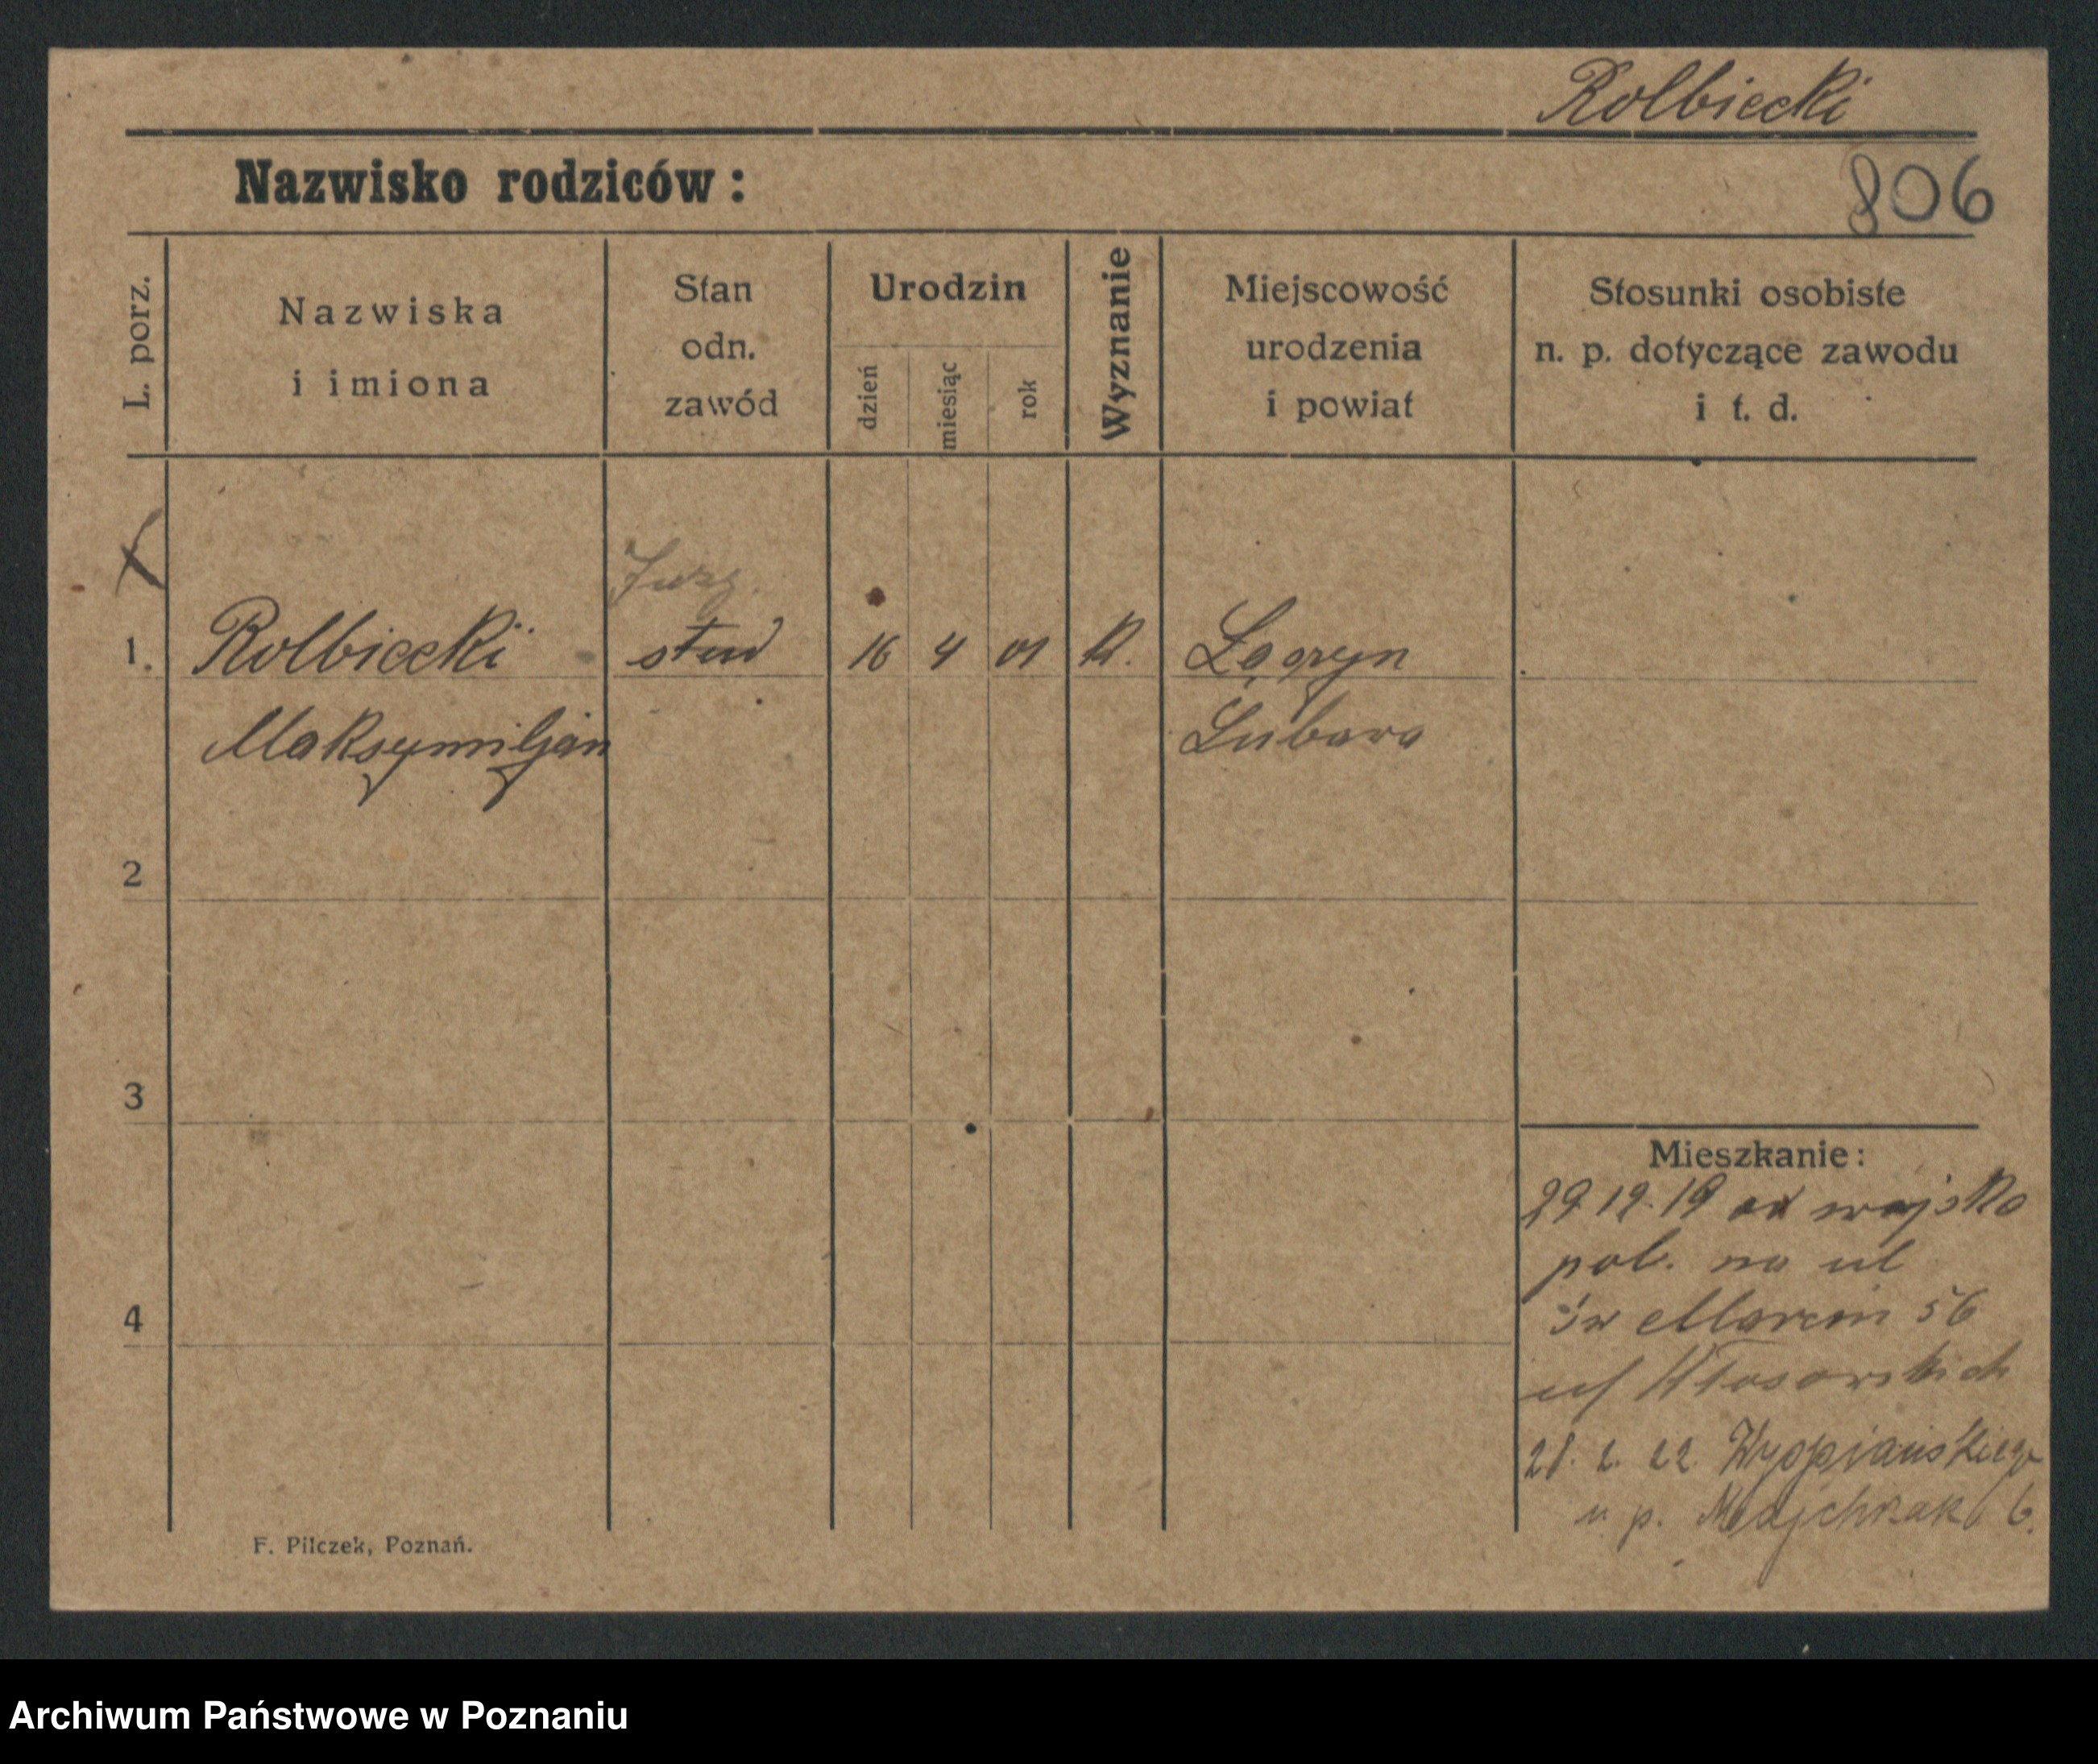 Rolbiecki
Nazwisko rodziców:
806
L. porz.
Nazwiska
i imiona
Stan
odn.
zawód
Urodzin
dzień
miesiąc
rok
Wyznanie
Miejscowość
urodzenia
i powiat
Stosunki osobiste
n. p. dotyczące zawodu
i t. d.
1. Rolbiecki stud 16 4 01 K.
Maksymiljan Lubawa
2
3
4
Mieszkanie:
29.12.19 od wojsko
pol. na ul
św Marcin 56
2. 22 Wyspiańskiego
u p. Majchrzak 6.
F. Pilczek, Poznań.
Archiwum Państwowe w Poznaniu